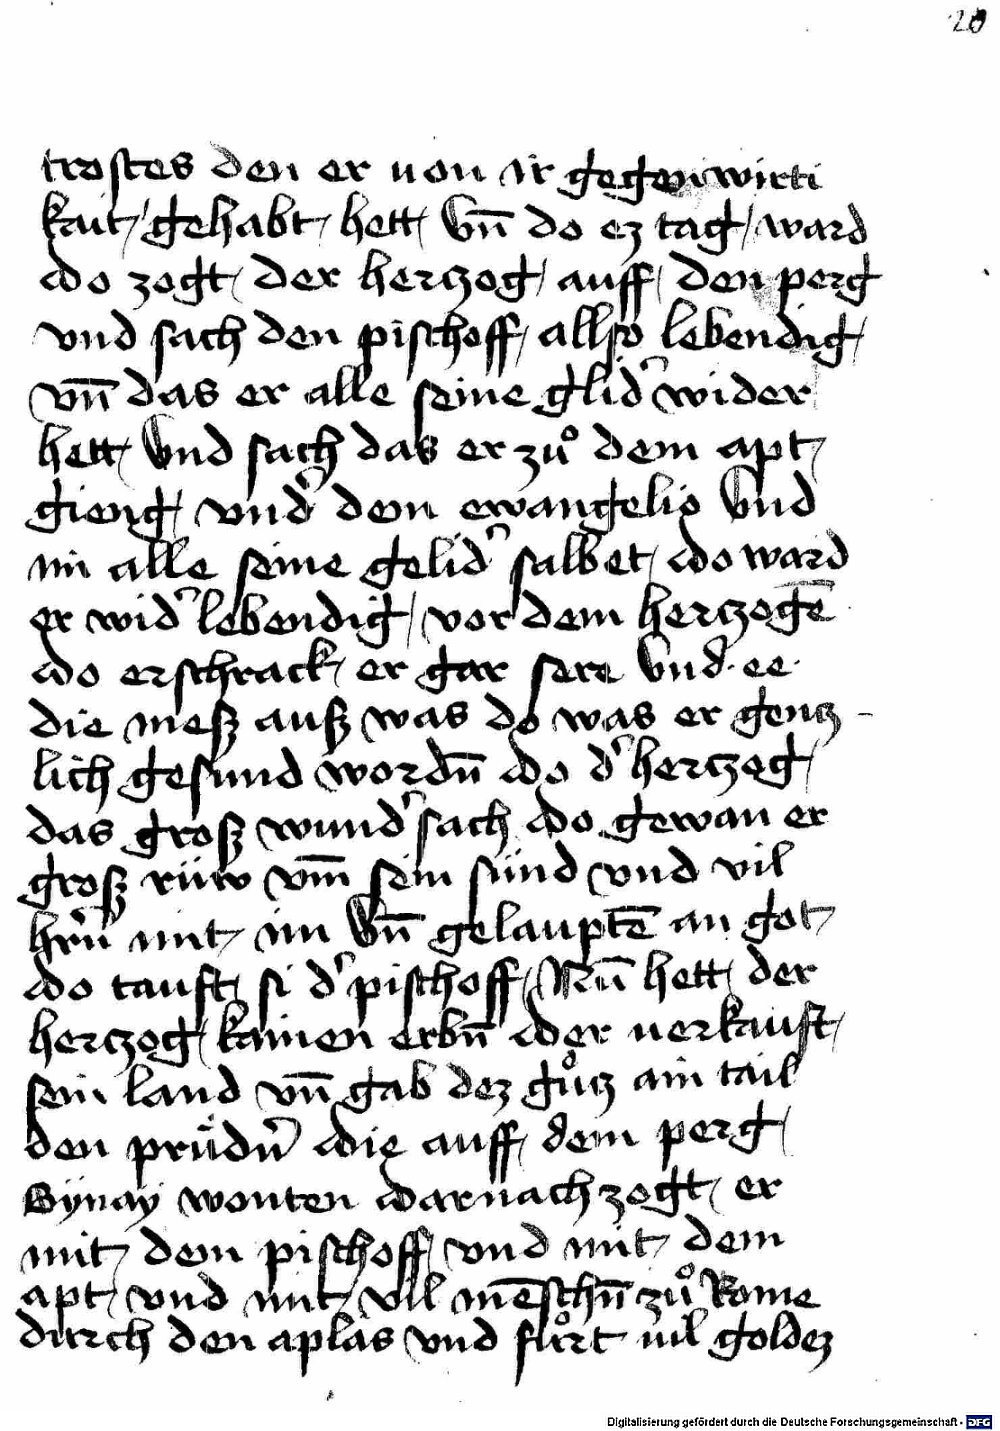 20
trostes den er von ir gegenwirti
kait gehabt hett Vn̄ do ez tag ward
do zogt der herczog auff den perg
vnd sach den pischoff allso lebendig
vn̄ das er alle seine glid' wider
hett Vnd sach das er zuͦ dem apt
gieng vnd' dem ewangelio Vnd
im alle seine gelid' salbet do ward
er wid' lebendig vor dem herczogē
do erschrack er gar sere Vnd ee
die mesß ausß was do was er gencz-
lich gesund wordn̄ do d' herczog
das grosß wund' sach do gewan er
grosß rüw vm̄ sein sünd vnd vil
hr̄n mit im Vn̄ gelauptē an got
do tauft si d' pischoff Nun̄ hett der
herczog kainen erbn̄ der verkauft
sein land vn̄ gab dez guͦcz ain tail
den pruͤdn̄ die auff dem perg
Synay wonten darnach zogt er
mit dem pischoff vnd mit dem
apt vnd mit vil mēschn̄ zuͦ Rome
durch den aplas vnd fuͦrt vil goldez
Digitalisierung gefördert durch die Deutsche Forschungsgemeinschaft - DFG